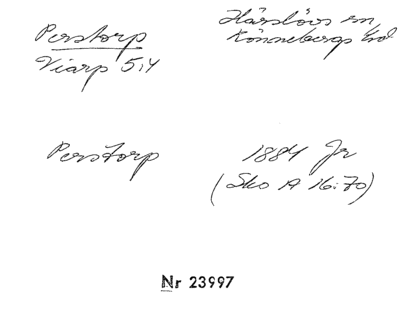 Perstorp
Viarp 5:4
Härslövs sn
Rönnebergs hd
Perstorp
1884 Jr
(Sko A 16:70)
Nr 23997